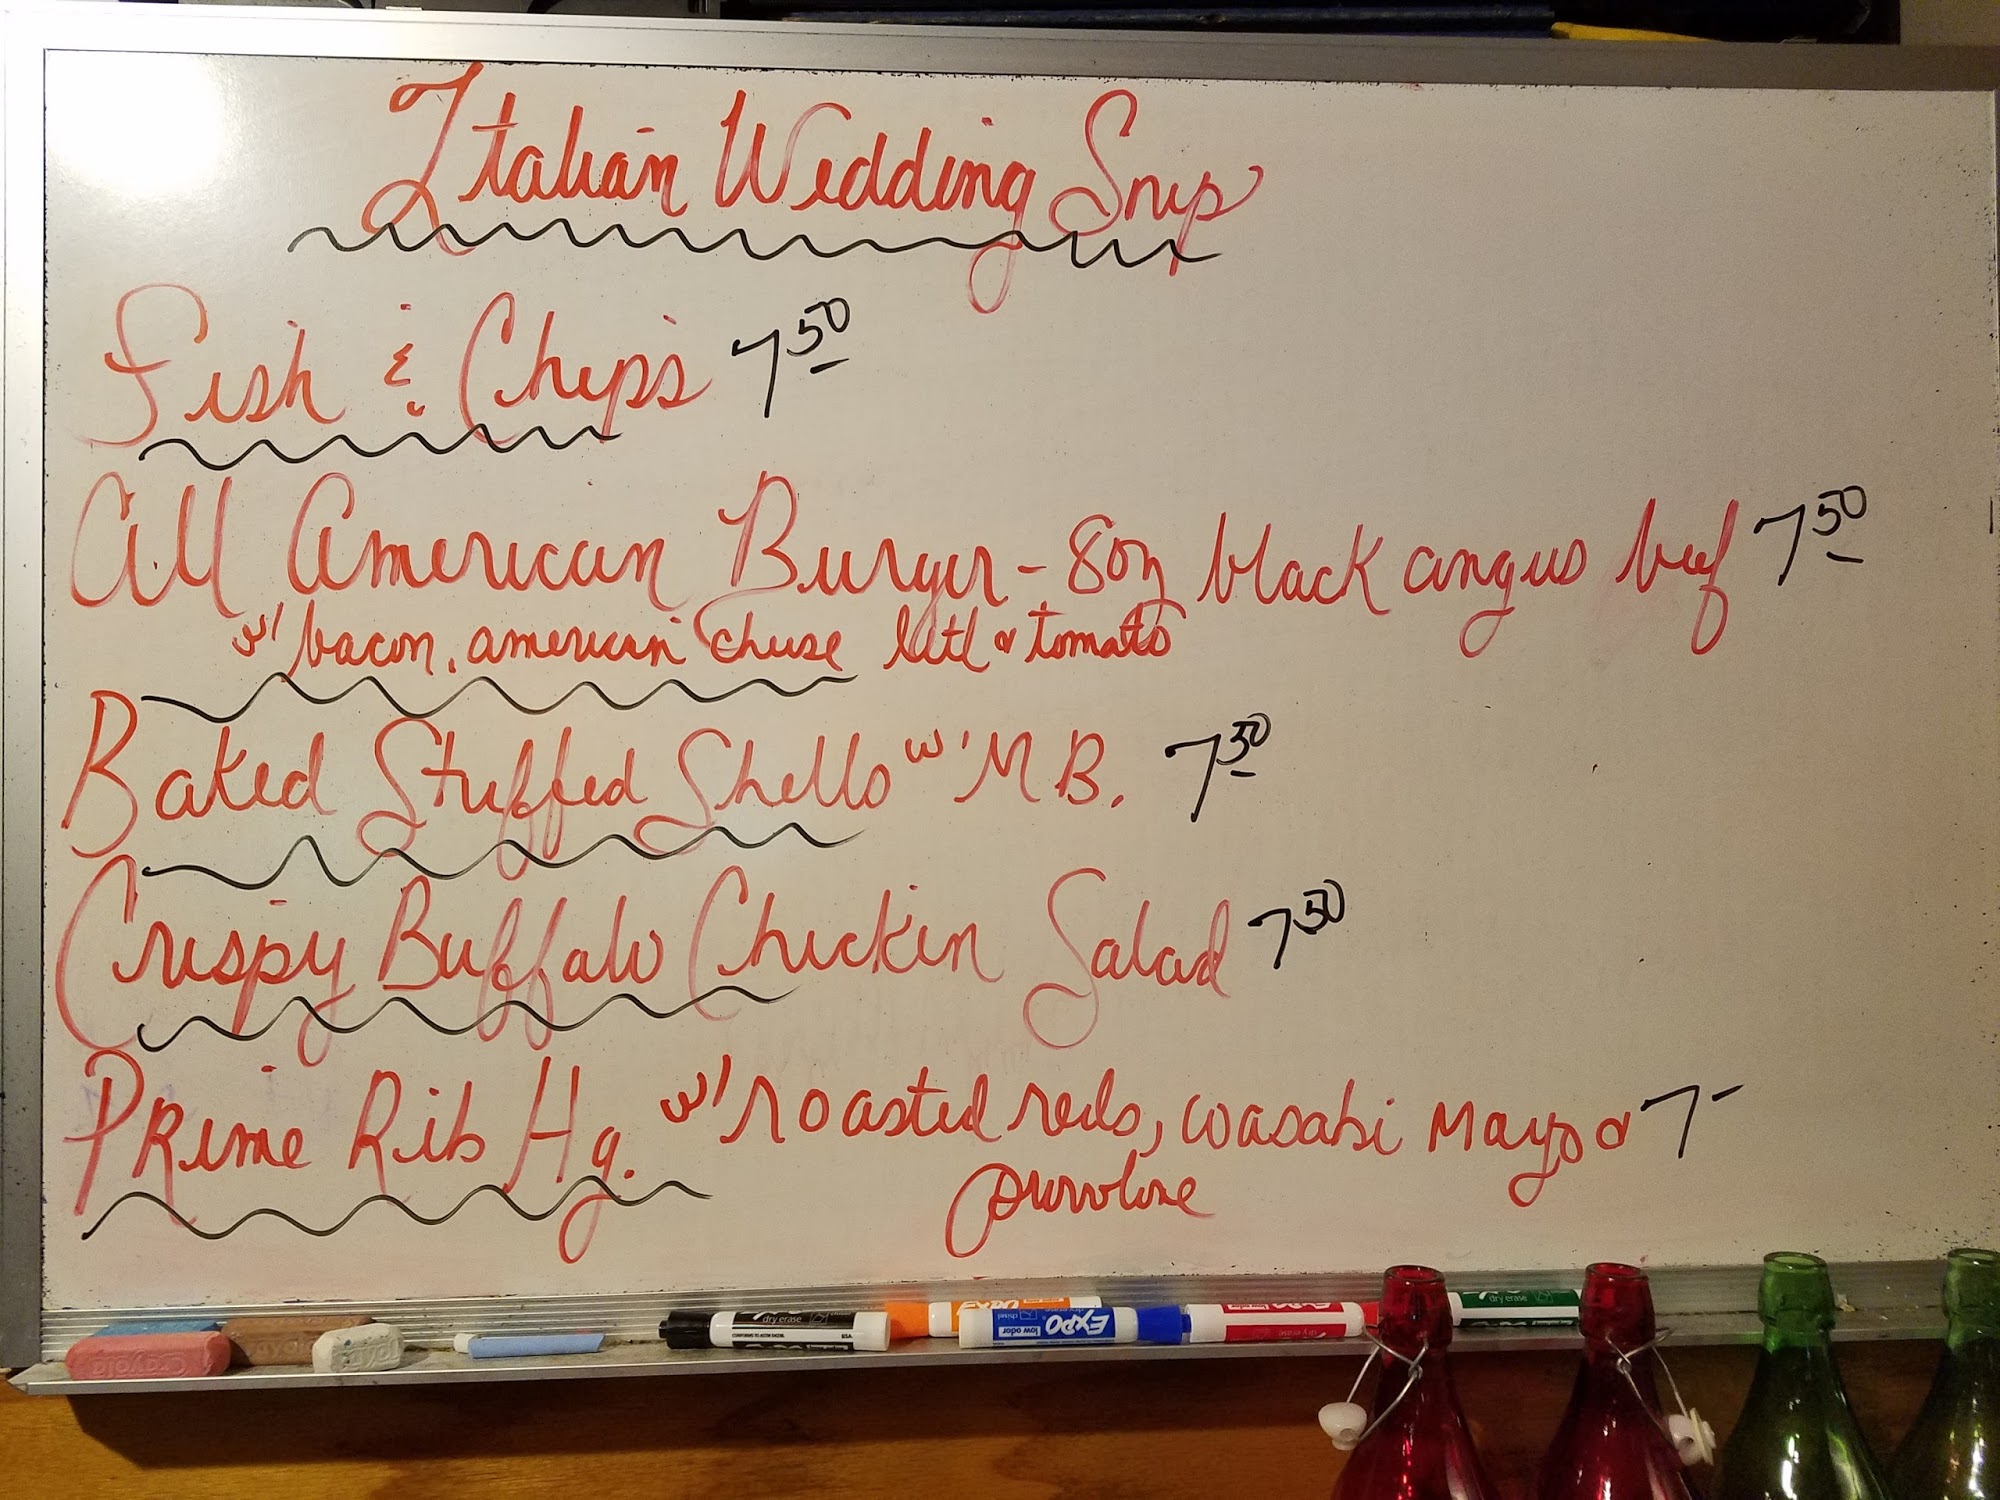 Italian Wedding Soup
Fish & Chips 7 50
All American Burger - 8oz black angus beef 7 50
w/ bacon, american cheese lett & tomato
Baked Stuffed Shells w/ M B. 7 50
Crispy Buffalo Chicken Salad 7 50
Prime Rib Hg. w/ roasted reds, wasabi mayo & 7 -
provolone
Crayola
dry erase
EXPO
low odor
dry erase